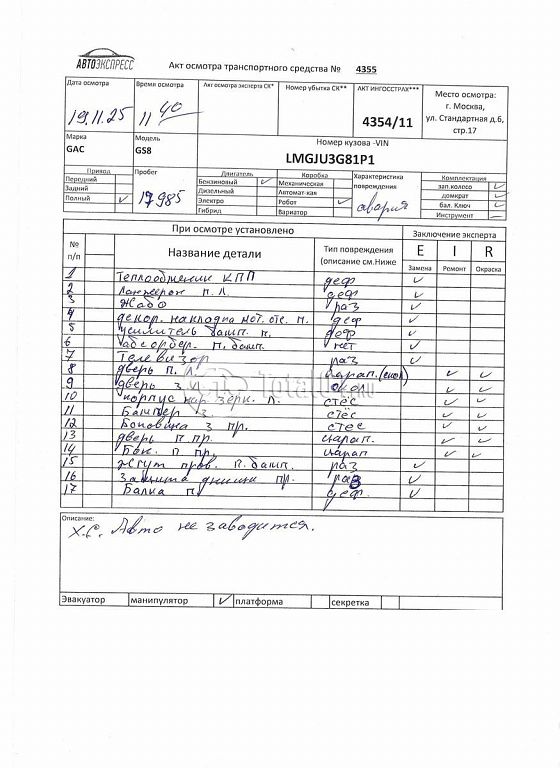 АВТОЭКСПРЕСС
Акт осмотра транспортного средства № 4355
Дата осмотра Время осмотра Акт осмотра эксперта СК* Номер убытка СК** АКТ ИНГОССТРАХ*** Место осмотра:
19.11.25 11 40 4354/11 г. Москва,
ул. Стандартная д.6,
стр.17
Марка Модель Номер кузова -VIN
GAC GS8 LMGJU3G81P1
Привод Пробег Двигатель Коробка Характеристика повреждения Комплектация
Передний 17985 Бензиновый ✓ Механическая авария зап.колесо ✓
Задний Дизельный Автомат-кая домкрат ✓
Полный ✓ Электро Робот ✓ бал. Ключ ✓
Гибрид Вариатор Инструмент —
При осмотре установлено Заключение эксперта
№ п/п Название детали Тип повреждения (описание см.Ниже E I R
Замена Ремонт Окраска
1 Теплообменник КПП деф ✓
2 Лонжерон п. л. деф ✓
3 Жабо раз ✓
4 декор. накладка мот. отс. п. деф ✓
5 усилитель бамп. п. деф ✓
6 абсорбер. п. бамп. нет ✓
7 Телевизор раз ✓
8 дверь п. л. царап. (скол) ✓ ✓
9 дверь з. скол ✓ ✓
10 корпус нар зерк. л. стёс ✓ ✓
11 Бампер з. стёс ✓ ✓
12 Боковина з пр. стес ✓ ✓
13 дверь п пр. царап. ✓ ✓
14 Бок. п пр. царап ✓ ✓
15 Жгут пров. п. бамп. раз ✓
16 Защита днища пр. раз ✓
17 Балка п. деф. ✓
Описание:
Х.С. Авто не заводится.
Эвакуатор манипулятор ✓ платформа секретка